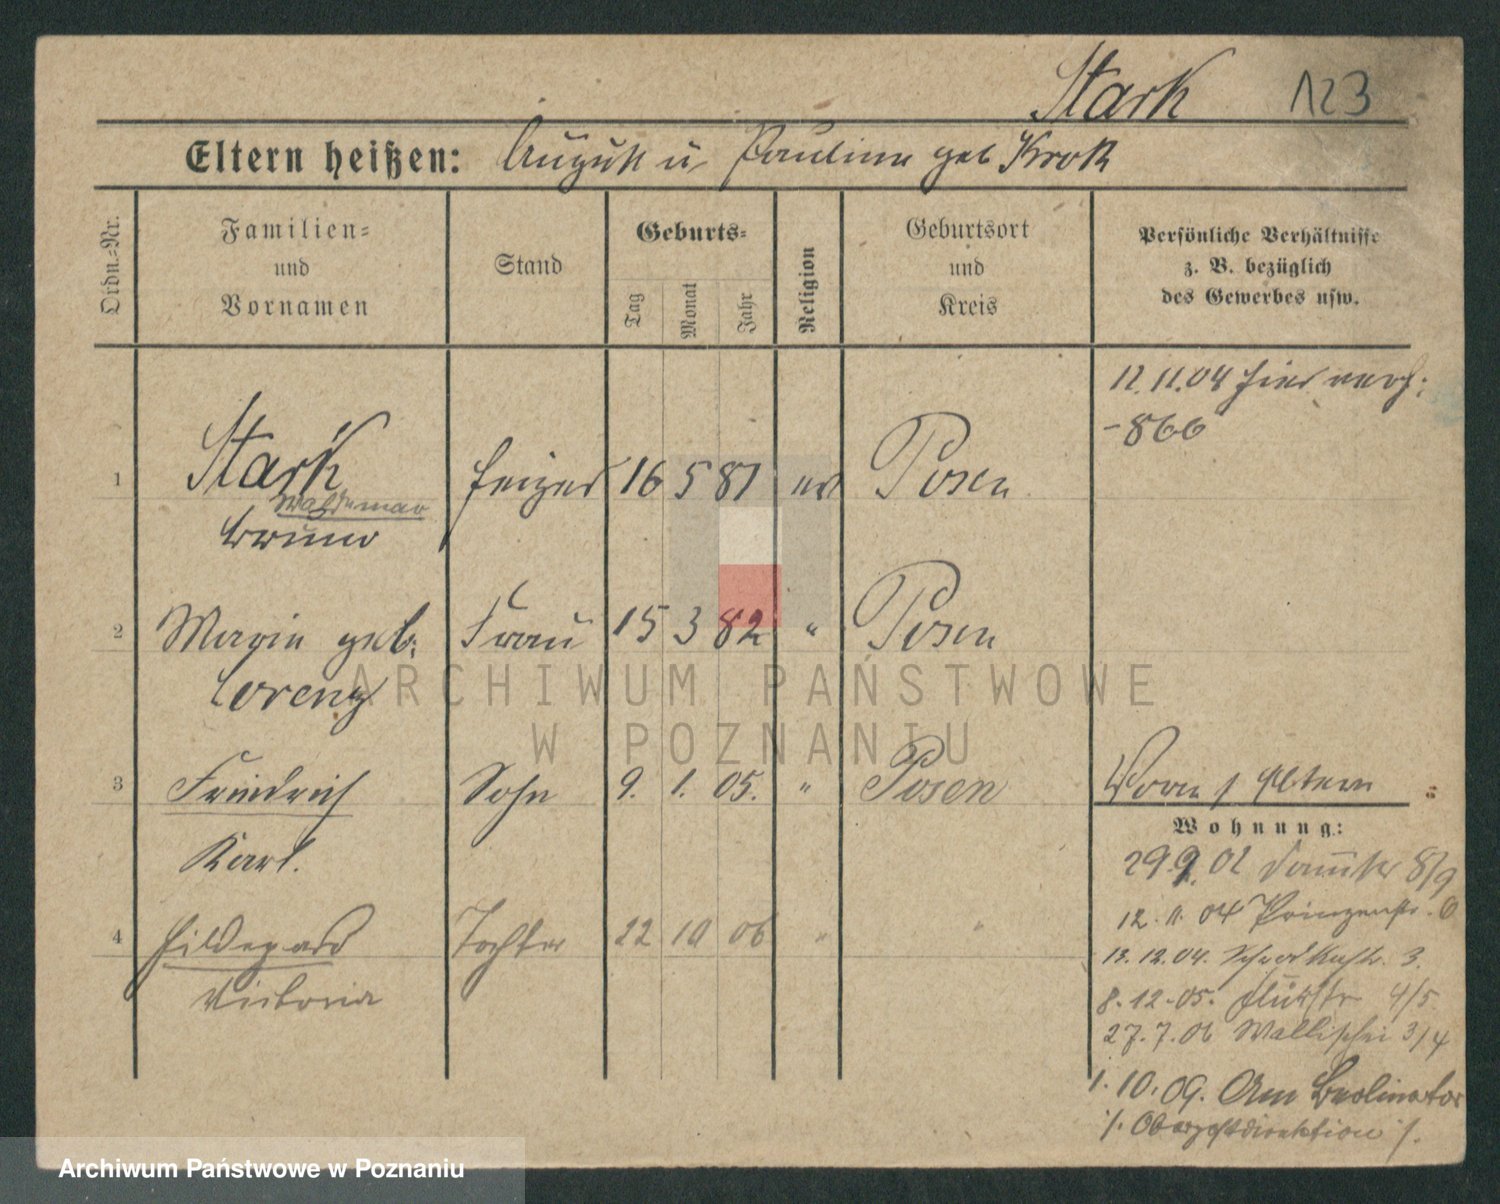 Stark 123
Eltern heißen: August u Pauline geb Krok
Ordn.-Nr.
Familien-
und
Vornamen
Stand
Geburts-
Tag
Monat
Jahr
Religion
Geburtsort
und
Kreis
Persönliche Verhältnisse
z. B. bezüglich
des Gewerbes usw.
12.11.04 hier verh:
-866
1 Stark Heizer 16 5 81 ev Posen
Waldemar
Bruno
2 Marie geb. Frau 15 3 82 " Posen
Lorenz
3 Friedrich Sohn 9. 1. 05. " Posen
Karl.
Eltern
Wohnung:
29.9.02 8/9
12.11.04 Prinzenstr. 6
4 Hildegard Tochter 22 10 06 " "
Victoria
13.12.04. 3.
8.12.05. 4/5
27.7.06 Wallischei 3/4
1.10.09. Am Berlinertor
/. Oberpostdirektion /.
ARCHIWUM PAŃSTWOWE
W POZNANIU
Archiwum Państwowe w Poznaniu